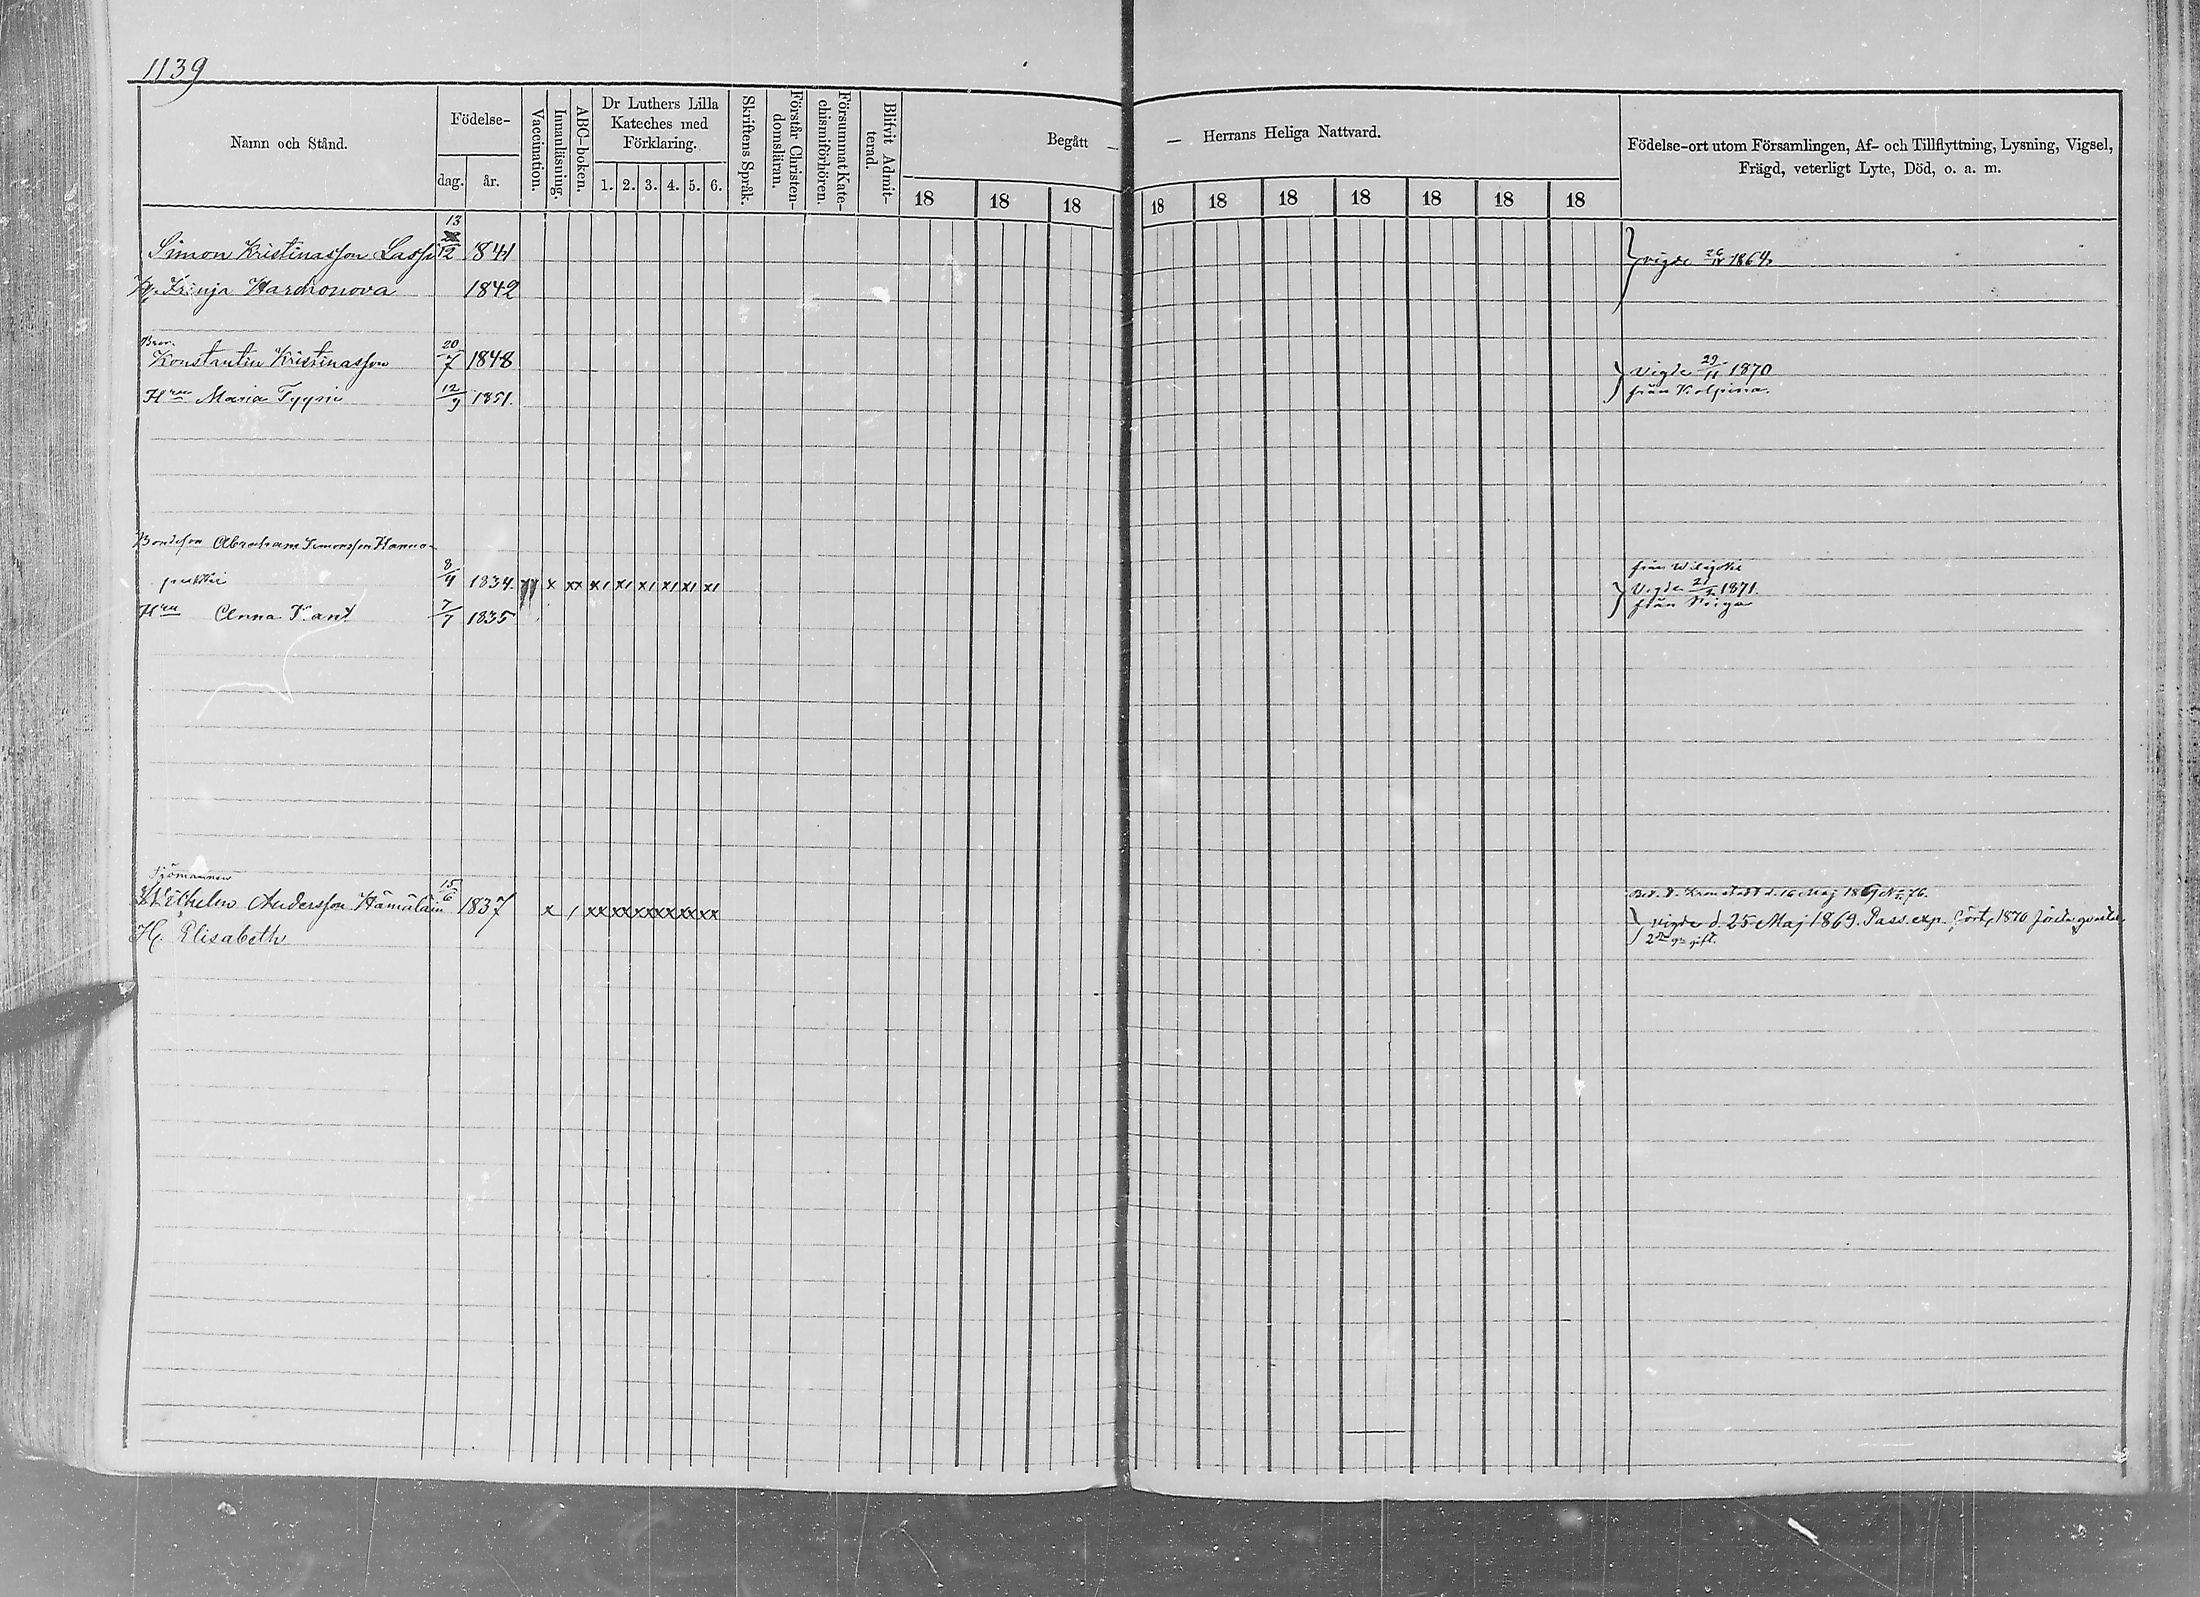 1139
Namn och Stånd.
Födelse-
dag. år.
Vaccination.
Innanläsning.
ABC-boken.
Dr Luthers Lilla
Kateches med
Förklaring.
1. 2. 3. 4. 5. 6.
Skriftens Språk.
Förstår Christen-
domsläran.
Försummat Kate-
chismiförhören.
Blifvit Admit-
terad.
Begått — — Herrans Heliga Nattvard.
18 18 18 18 18 18 18 18 18 18
Födelse-ort utom Församlingen, Af- och Tillflyttning, Lysning, Vigsel,
Frägd, veterligt Lyte, Död, o. a. m.
13
Simon Kristinasson Lassi 12 1841 vigde 26/IV 1864
1842
Bror
Konstantin Kristinasson 20/7 1848 Vigde 29/11 1870
Hru Maria Tyyni 12/9 1851. från Kolpina.
Bondeson Abraham Simonsson Hanno-
8/4 1834. x xx x1 x1 x1 x1 x1 x1 från
Vigde 21/ 1871.
Hru Anna 7/7 1835 från
Sjömannen
Wilhelm Andersson Hämäläin 15/6 1837 x / xx xx xx xx xx xx xx Kronstadt d. 16 Maj 1869 No 76.
vigde d. 25 Maj 1869. Pass. exp. 1870
H. Elisabeth 2 gift.